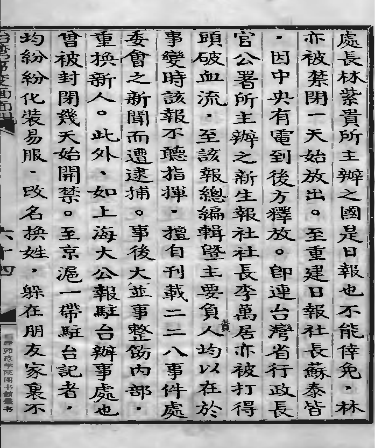 處長林紫貴所主辦之國是日報也不能倖免，林
亦被禁閉一天始放出。至重建日報社長蘇泰皆
，因中央有電到後方釋放。即連台灣省行政長
官公署所主辦之新生報社社長李萬居亦被打得
頭破血流，至該報總編輯暨主要負人均以在於
責
事變時該報不聽指揮，擅自刊載二二八事件處
委會之新聞而遭逮捕。事後大並事整飭內部，
重換新人。此外，如上海大公報駐台辦事處也
曾被封閉幾天始開禁。至京滬一帶駐台記者，
均紛紛化裝易服，改名換姓，躲在朋友家裏不
六十四